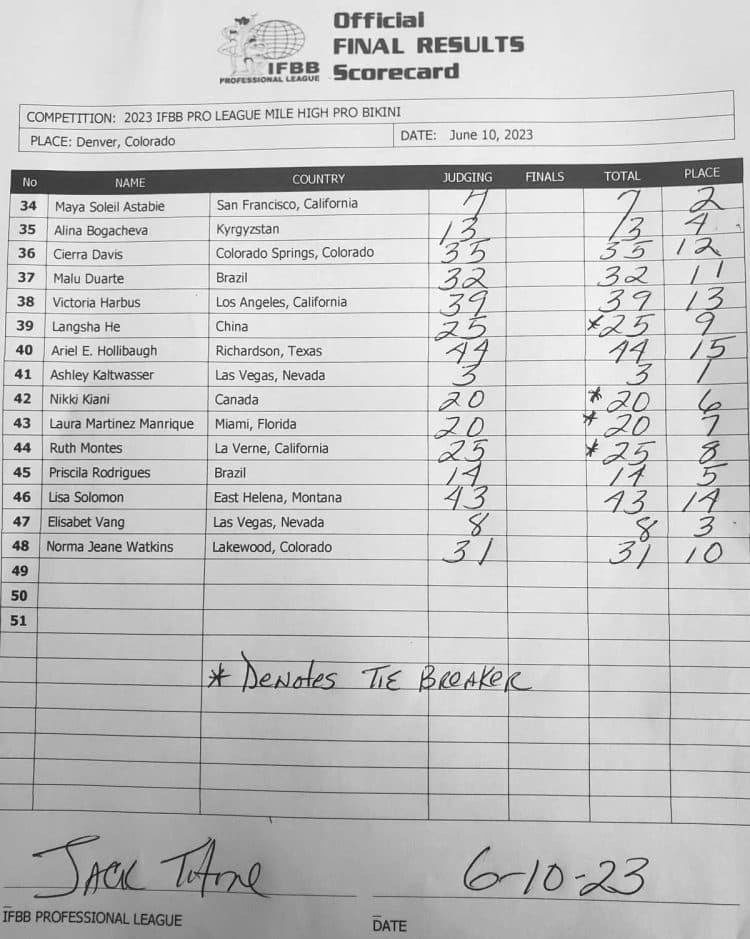 Official
FINAL RESULTS
Scorecard
IFBB
PROFESSIONAL LEAGUE
COMPETITION: 2023 IFBB PRO LEAGUE MILE HIGH PRO BIKINI
PLACE: Denver, Colorado DATE: June 10, 2023
No NAME COUNTRY JUDGING FINALS TOTAL PLACE
34 Maya Soleil Astabie San Francisco, California 7 7 2
35 Alina Bogacheva Kyrgyzstan 13 13 4
36 Cierra Davis Colorado Springs, Colorado 35 35 12
37 Malu Duarte Brazil 32 32 11
38 Victoria Harbus Los Angeles, California 39 39 13
39 Langsha He China 25 *25 9
40 Ariel E. Hollibaugh Richardson, Texas 44 44 15
41 Ashley Kaltwasser Las Vegas, Nevada 3 3 1
42 Nikki Kiani Canada 20 *20 6
43 Laura Martinez Manrique Miami, Florida 20 *20 7
44 Ruth Montes La Verne, California 25 *25 8
45 Priscila Rodrigues Brazil 14 14 5
46 Lisa Solomon East Helena, Montana 43 43 14
47 Elisabet Vang Las Vegas, Nevada 8 8 3
48 Norma Jeane Watkins Lakewood, Colorado 31 31 10
49
50
51
* Denotes TIE BREAKER
JACK 6-10-23
IFBB PROFESSIONAL LEAGUE DATE